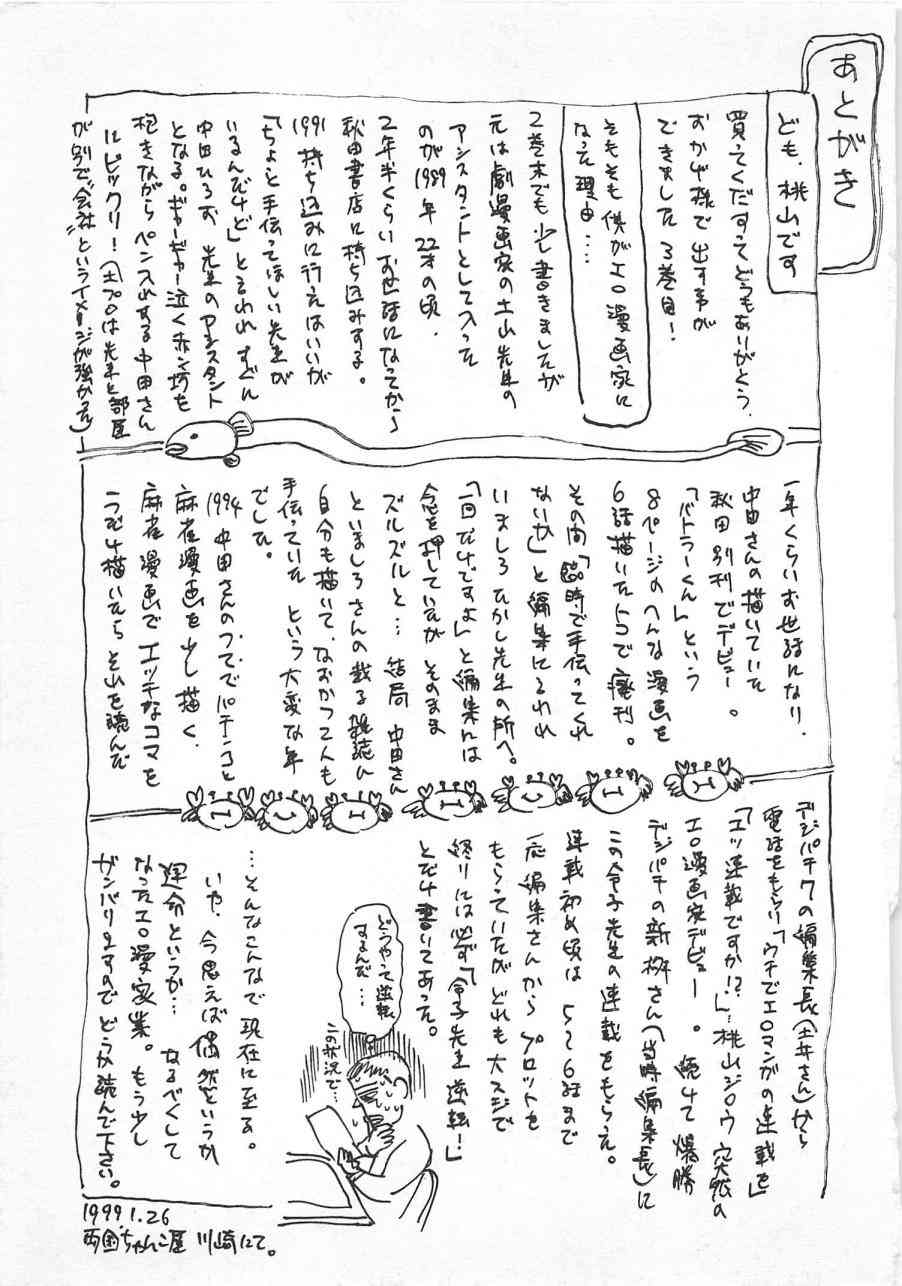 あとがき
ども、桃山です
買ってくだすってどうもありがとう、
おかげ様で出す事が
できました3巻目!
そもそも僕がエロ漫画家に
なった理由…。
2巻末でも少し書きましたが
元は劇漫画家の土山先生の
アシスタントとして入った
のが1989年 22才の頃。
2年半くらいお世話になってから
秋田書店に持ち込みする。
1991 持ち込みに行くはいいが
「ちょっと手伝ってほしい先生が
いるんだけど」と言われ すぐに
中田ひろお 先生のアシスタント
となる。ギャーギャー泣く赤ン坊を
抱きながらペン入れする中田さん
にビックリ!(土プロは先生と部屋
が別で"会社"というイメージが強かった)
一年くらいお世話になり、
中田さんの描いていた
秋田 別刊でデビュー。
「バトラーくん」という
8ページのへんな漫画を
6話描いたトコで廃刊。
その間「臨時で手伝ってくれ
ないか」と編集に言われ
いましろたかし先生の所へ。
「一回だけですよ」と編集には
念を押していたが そのまま
ズルズルと… 結局 中田さん
といましろさんの載る雑誌に
自分も描いて、なおかつ二人も
手伝っていた という大変な年
でした。
1994 中田さんのつてで パチンコと
麻雀漫画を少し描く、
麻雀漫画で エッチなコマを
うつだけ描いたら それを読んだ
エ
デジパチ7の編集長(土井さん)から
電話をもらい「ウチでエロマンガの連載を」
「エッ連載ですか!?」… 桃山ジロウ 突然の
エロ漫画家デビュー。 続けて 爆勝
デジパチの新桝さん(当時編集長)に
この令子先生の連載をもらった。
連載初め頃は 5〜6話まで
一応 編集さんから プロットを
もらっていたが どれも大スジで
終りには必ず「令子先生 逆転!」
とだけ書いてあった。
どうやって逆転
するんだ…
この状況で…
…そんなこんなで現在に至る。
いや、今思えば偶然というか
運命というか… なるべくして
なったエロ漫家業。もう少し
ガンバリますので どうか読んで下さい。
1999.1.26
両国ちゃんこ屋 川崎にて。